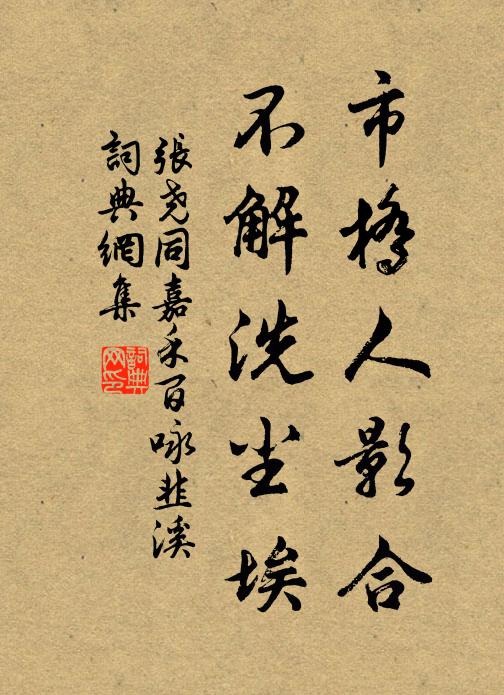 市橋人影合
不解洗尘埃
張尧同嘉禾百咏韭溪
詞典網集
詞典网印